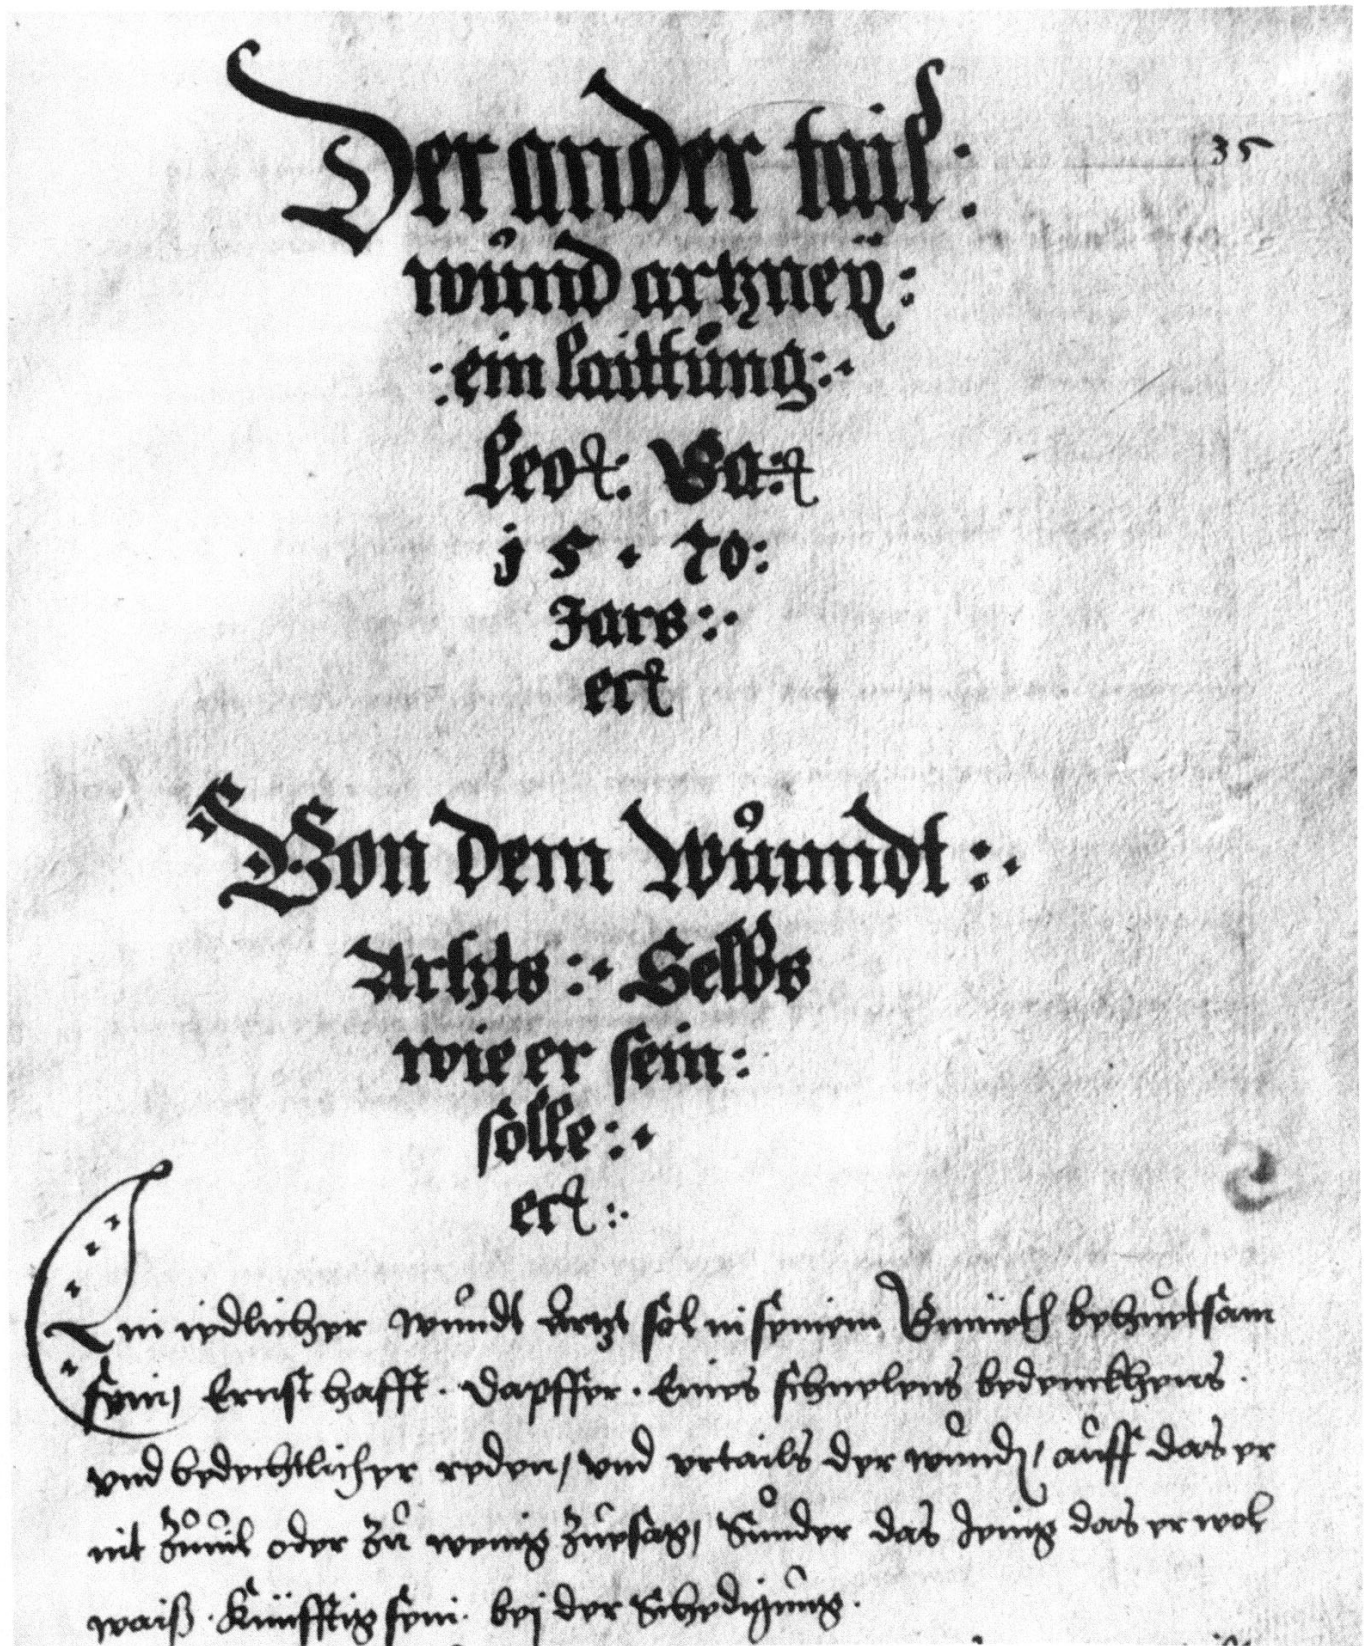 Der ander tail:
35
wůnd artzneÿ:
:ein laittůng:·
Leo
j 5 · 70:
Jars:·
etc
Von dem Wůnndt:·
Artzts:· Selbs
wie er sein:
solle:·
etc:·
Ein iedlicher wůndt Artzt sol in seinem Gmüeth behůetsam
sein, Ernsthafft. Dapffer. Eines schnelens bedenckhens.
vnd bedechtlicher reden, vnd vrtails der wůnd, aůff das er
nit Zůuil oder Zů wenig Zůesag, Sůnder das Jenig das er wol
waiß. Künfftig sein. bej der Schedigůng.